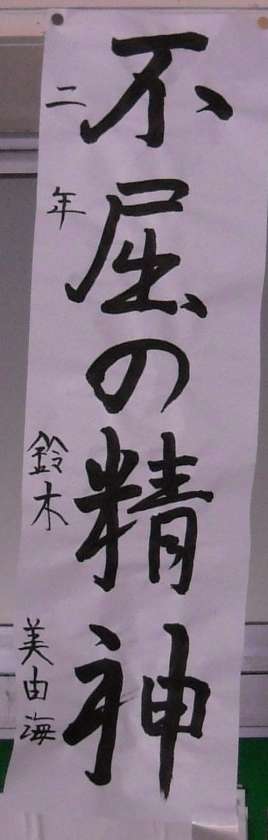 不屈の精神
二年 鈴木 美由海